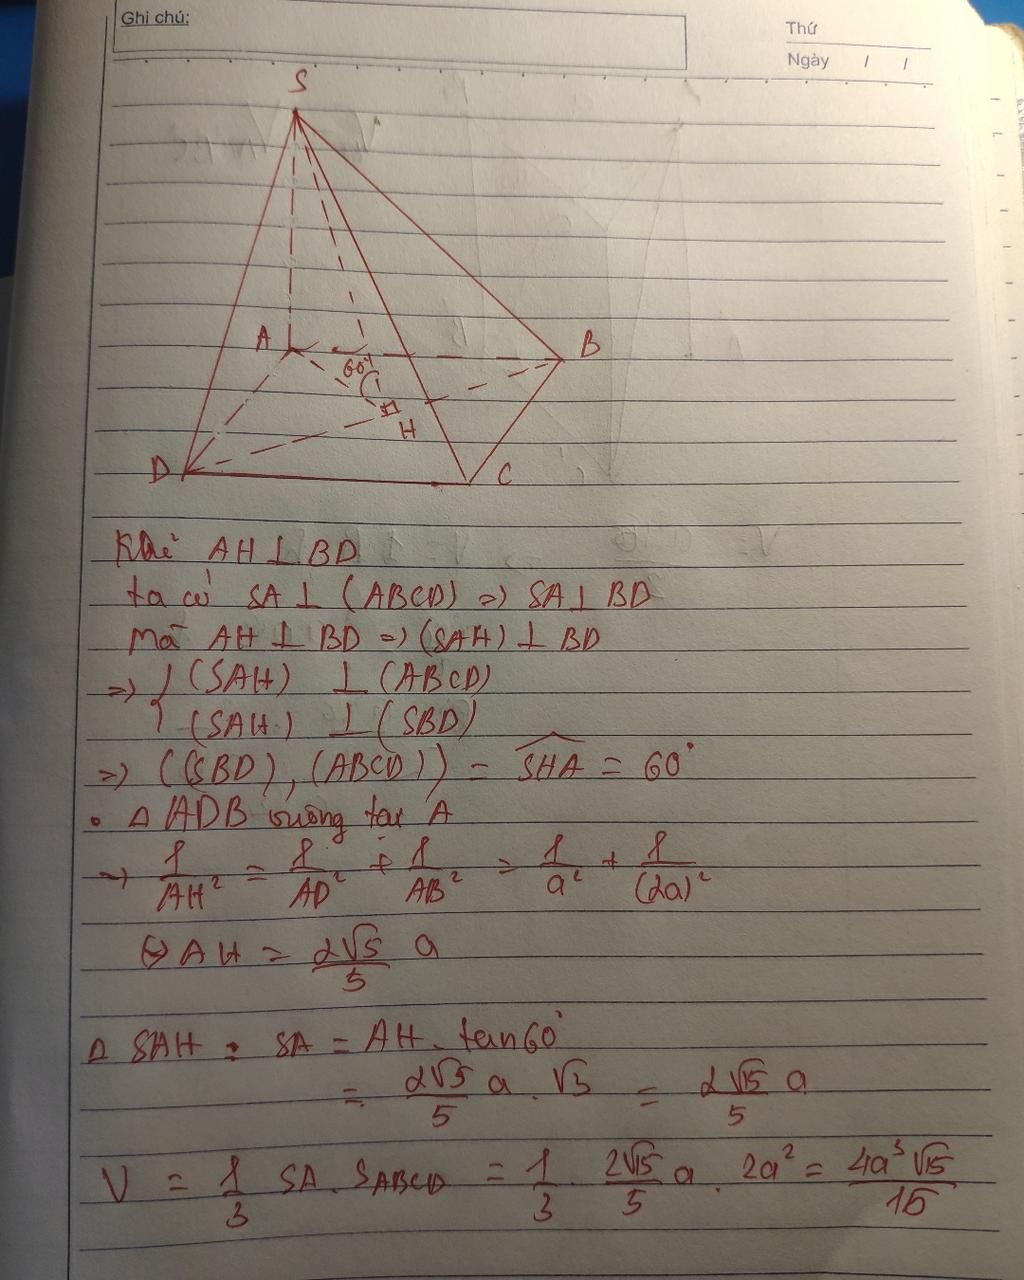 Ghi chú:
Thứ
Ngày / /
S
A
B
60°
H
D
C
Kẻ AH ⊥ BD
ta có SA ⊥ (ABCD) => SA ⊥ BD
Mà AH ⊥ BD => (SAH) ⊥ BD
=> { (SAH) ⊥ (ABCD)
(SAH) ⊥ (SBD)
=> ((SBD), (ABCD)) = \widehat{SHA} = 60°
• Δ ADB vuông tại A
=> 1/AH² = 1/AD² + 1/AB² = 1/a² + 1/(2a)²
⇔ AH = 2√5/5 a
Δ SAH : SA = AH . tan60°
= 2√5/5 a . √3 = 2√15/5 a
V = 1/3 SA . SABCD = 1/3 . 2√15/5 a . 2a² = 4a³√15/15